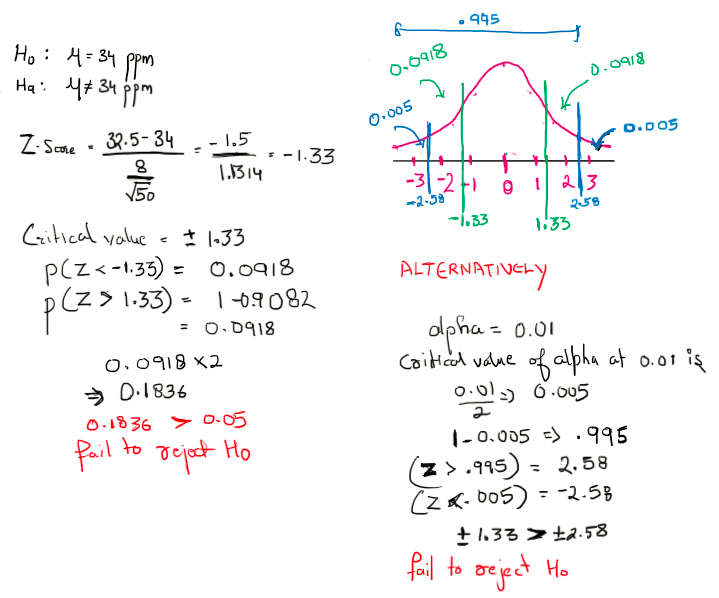 H₀ : μ = 34 ppm
Ha : μ ≠ 34 ppm
Z-Score = (32.5 - 34) / (8/√50) = -1.5 / 1.1314 = -1.33
Critical value = ± 1.33
p(Z < -1.33) = 0.0918
p(Z > 1.33) = 1-0.9082
= 0.0918
0.0918 × 2
⇒ 0.1836
0.1836 > 0.05
fail to reject H₀
.995
0.0918
0.0918
0.005
0.005
-3 -2 -1 0 1 2 3
-2.58
2.58
-1.33
1.33
ALTERNATIVELY
alpha = 0.01
Critical value of alpha at 0.01 is
0.01/2 ⇒ 0.005
1 - 0.005 ⇒ .995
(Z > .995) = 2.58
(Z < .005) = -2.58
± 1.33 > ±2.58
fail to reject H₀